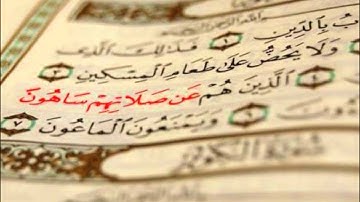 بِالدِّينِ ۝١ فَذَٰلِكَ الَّذِي
وَلَا يَحُضُّ عَلَىٰ طَعَامِ الْمِسْكِينِ ۝٣
الَّذِينَ هُمْ عَن صَلَاتِهِمْ سَاهُونَ
وَيَمْنَعُونَ الْمَاعُونَ ۝٧
سُورَةُ الْكَوْثَرِ